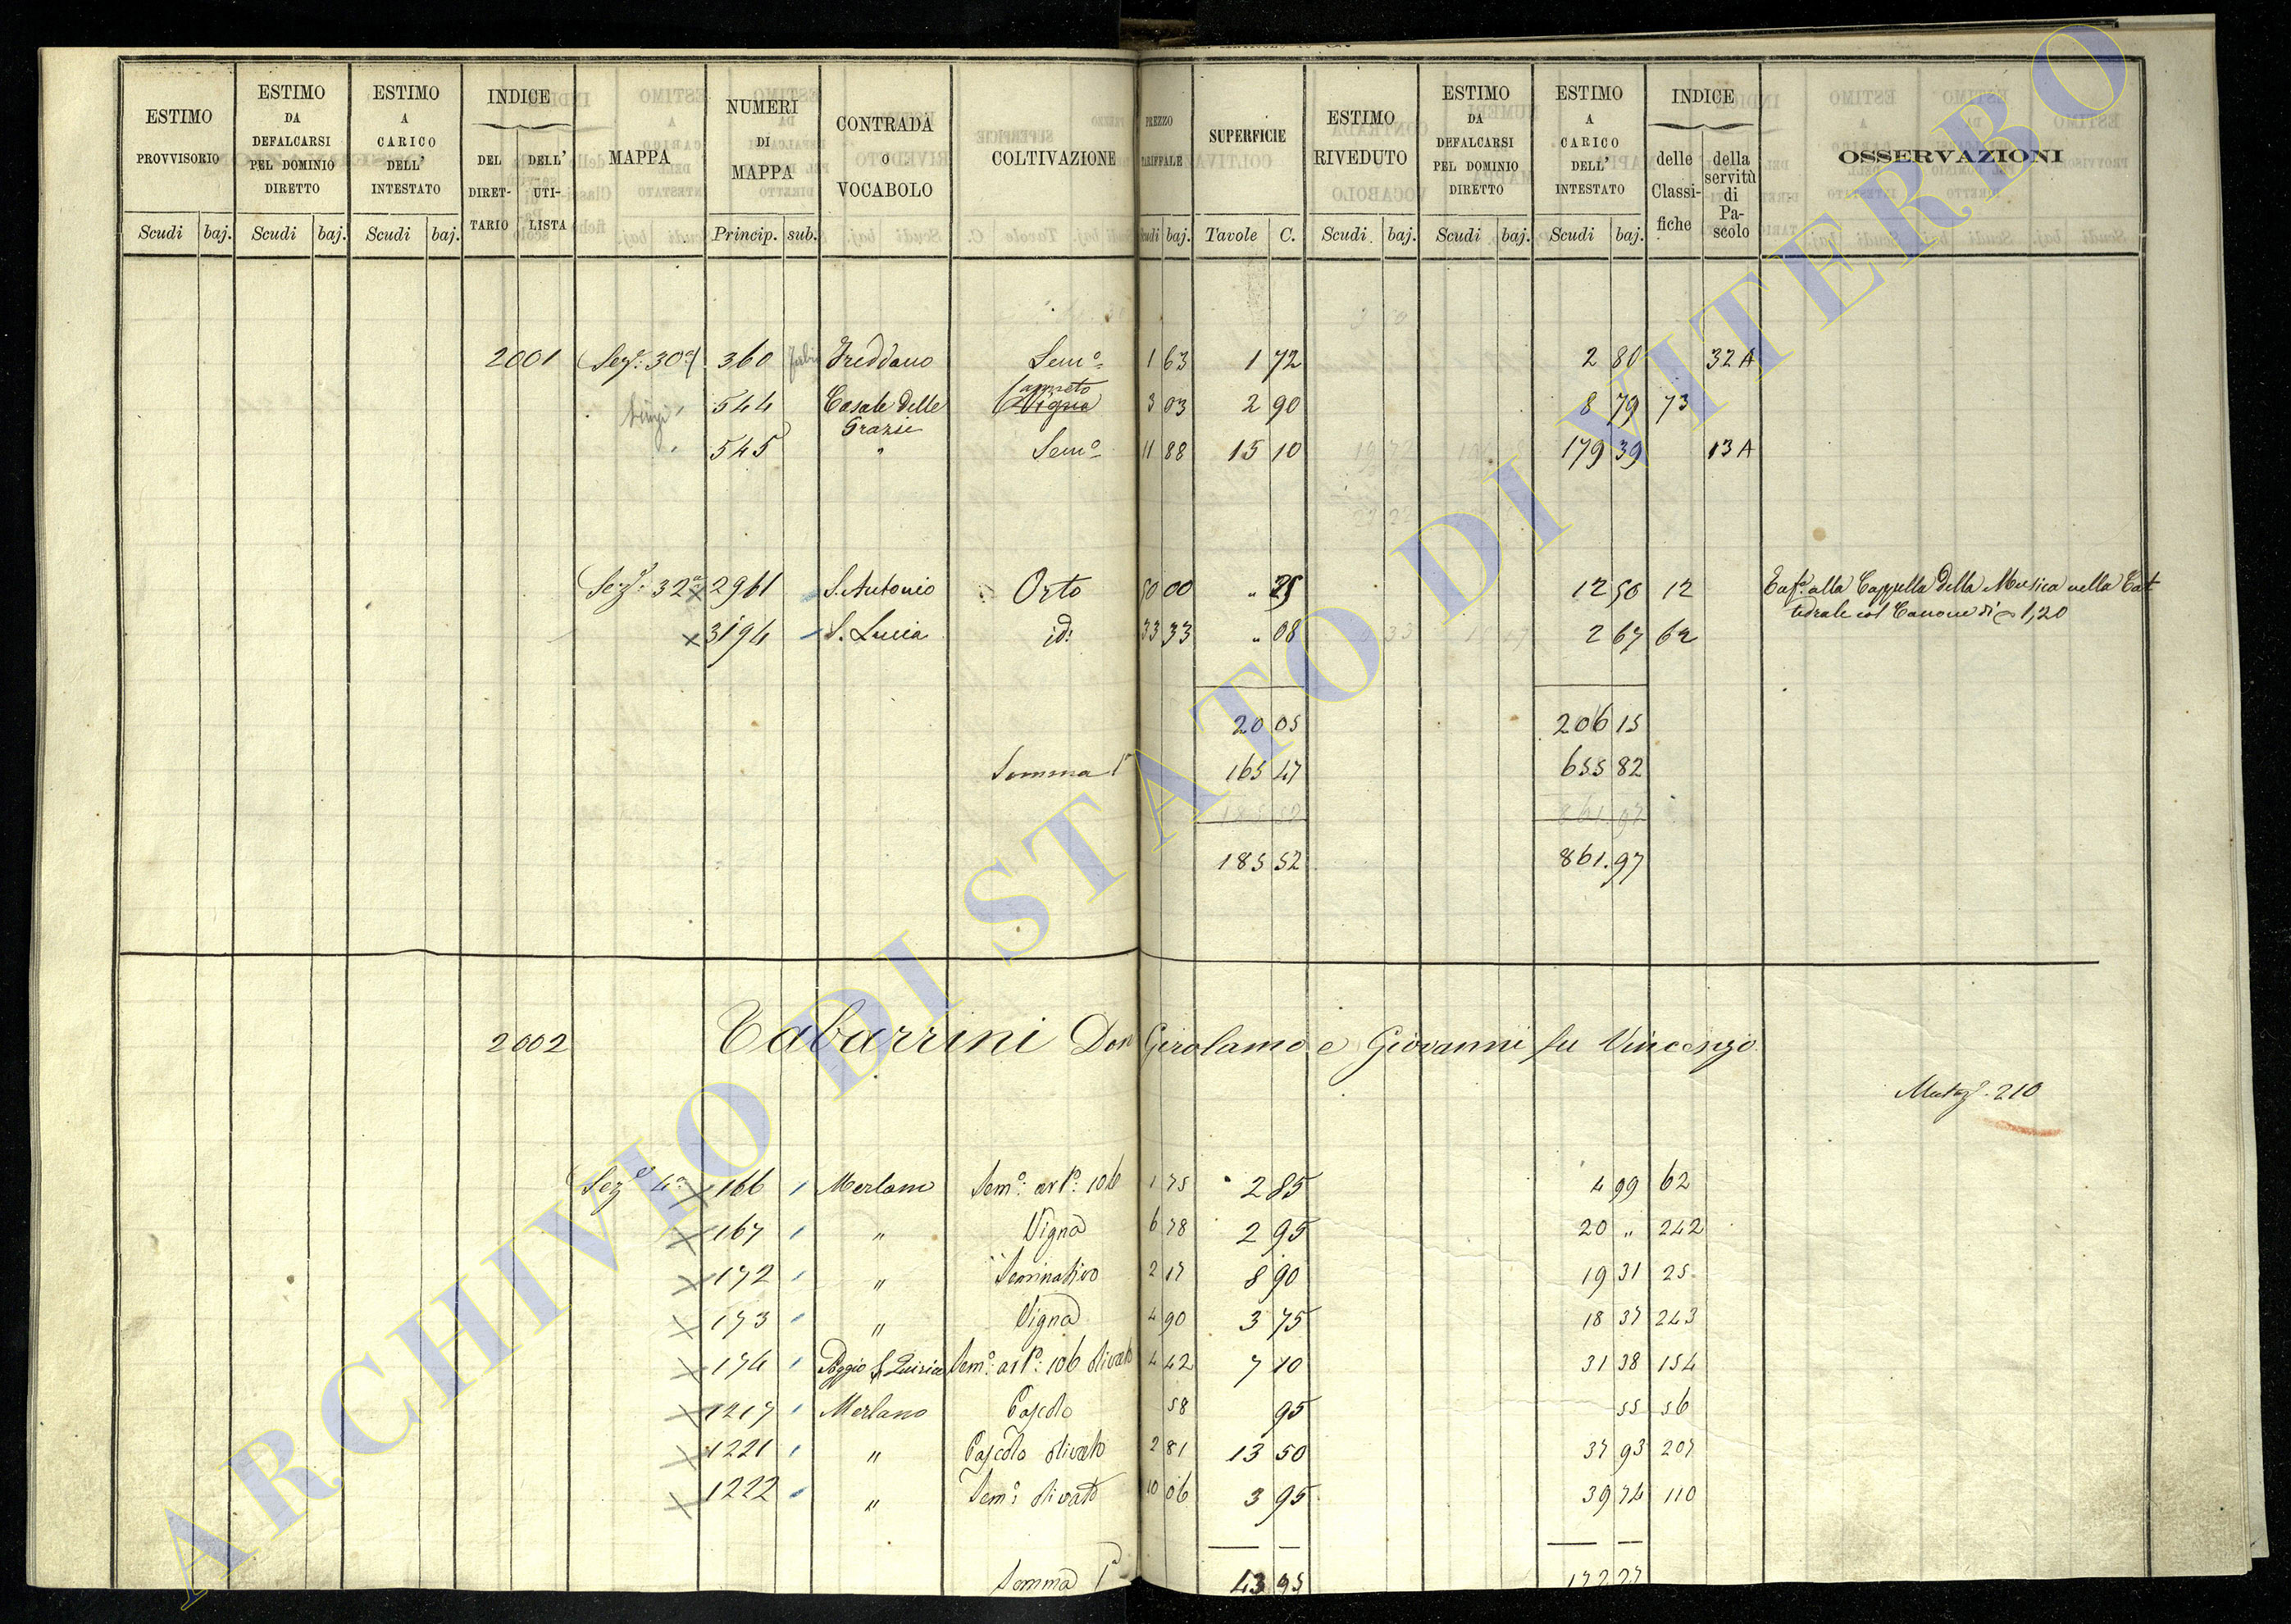 ESTIMO PROVVISORIO | ESTIMO DA DEFALCARSI PEL DOMINIO DIRETTO | ESTIMO A CARICO DELL' INTESTATO | INDICE DEL DIRETTARIO | DELL' UTILISTA | MAPPA | NUMERI DI MAPPA | CONTRADA O VOCABOLO | COLTIVAZIONE | PREZZO TARIFFALE | SUPERFICIE | ESTIMO RIVEDUTO | ESTIMO DA DEFALCARSI PEL DOMINIO DIRETTO | ESTIMO A CARICO DELL' INTESTATO | INDICE delle Classifiche | della servitù di Pascolo | OSSERVAZIONI
Scudi baj. | Scudi baj. | Scudi baj. | Princip. sub. | Scudi baj. | Tavole C. | Scudi baj. | Scudi baj. | Scudi baj.
2001 Sez.e 30a 360 Freddano Sem.o 1 63 1 72 2 80 32 A
544 Casale delle Grazie Canneto Vigna 3 03 2 90 8 79 73
545 " Sem.o 11 88 15 10 179 39 13 A
Sez.e 32a 2961 S. Antonio Orto 50 00 " 25 12 50 12 Enf.a alla Cappella della Musica nella Cat
tedrale col Canone di 1,20
3194 S. Lucia id: 33 33 " 08 2 67 62
20 05 206 15
Somma 1a 165 47 655 82
185 52 861.97
185 52 861.97
2002 Tabarrini Don Girolamo e Giovanni fu Vincenzo
Mutaz.e 210
Sez.e 4a 166 Merlano Sem.o art.o 106 1 75 2 85 4 99 62
167 " Vigna 6 78 2 95 20 " 242
172 " Seminativo 2 17 8 90 19 31 25
173 " Vigna 4 90 3 75 18 37 243
174 Poggio S. Quirico Sem.o art.o 106 olivato 4 42 7 10 31 38 154
1217 Merlano Pascolo 58 95 55 56
1221 " Pascolo olivato 2 81 13 50 37 93 207
1222 " Sem.o olivato 10 06 3 95 39 74 110
Somma 1a 43 95 172 27
ARCHIVIO DI STATO DI VITERBO